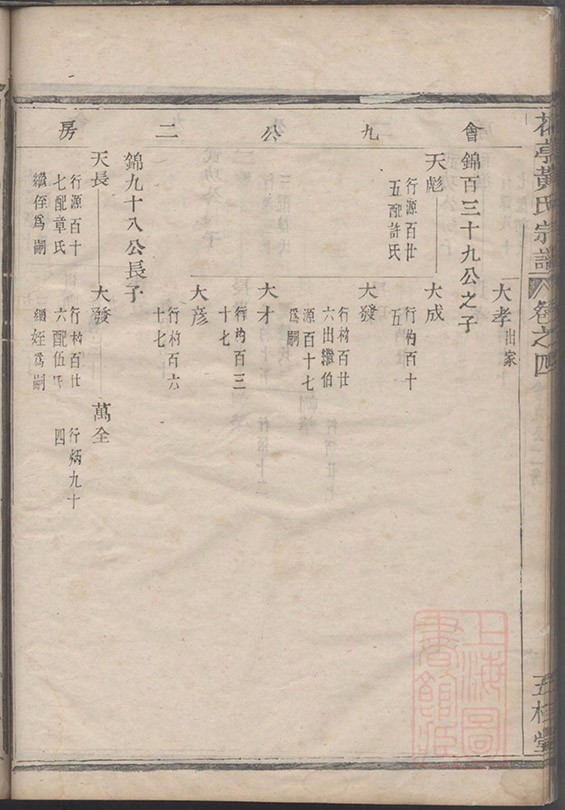 花亭黃氏宗譜 卷之四 五桂堂
會九公二房
大孝 出家
錦百三十九公之子
天彪 大成
行源百廿 行杓百十
五配許氏 五
大發
行杓百廿
六出繼伯
源百十七
爲嗣
大才
行杓百三
十七
大彥
行杓百六
十七
錦九十八公長子
天長 大發 萬全
行源百十 行杓百廿 行炳九十
七配章氏 六配伍氏 四
繼侄爲嗣 繼姪爲嗣
上海圖書館藏